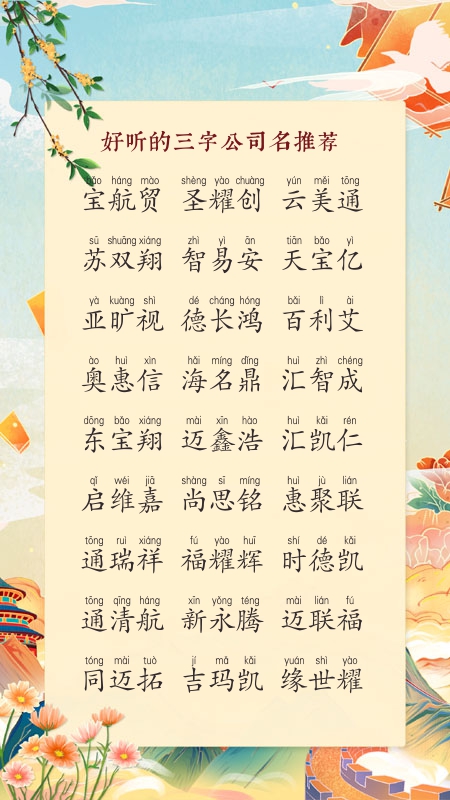 好听的三字公司名推荐
bǎo háng mào shèng yào chuàng yún měi tōng
宝航贸 圣耀创 云美通
sū shuāng xiáng zhì yì ān tiān bǎo yì
苏双翔 智易安 天宝亿
yà kuàng shì dé cháng hóng bǎi lì ài
亚旷视 德长鸿 百利艾
ào huì xìn hǎi míng dǐng huì zhì chéng
奥惠信 海名鼎 汇智成
dōng bǎo xiáng mài xīn hào huì kǎi rén
东宝翔 迈鑫浩 汇凯仁
qǐ wéi jiā shàng sī míng huì jù lián
启维嘉 尚思铭 惠聚联
tōng ruì xiáng fú yào huī shí dé kǎi
通瑞祥 福耀辉 时德凯
tōng qīng háng xīn yǒng téng mài lián fú
通清航 新永腾 迈联福
tóng mài tuò jí mǎ kǎi yuán shì yào
同迈拓 吉玛凯 缘世耀